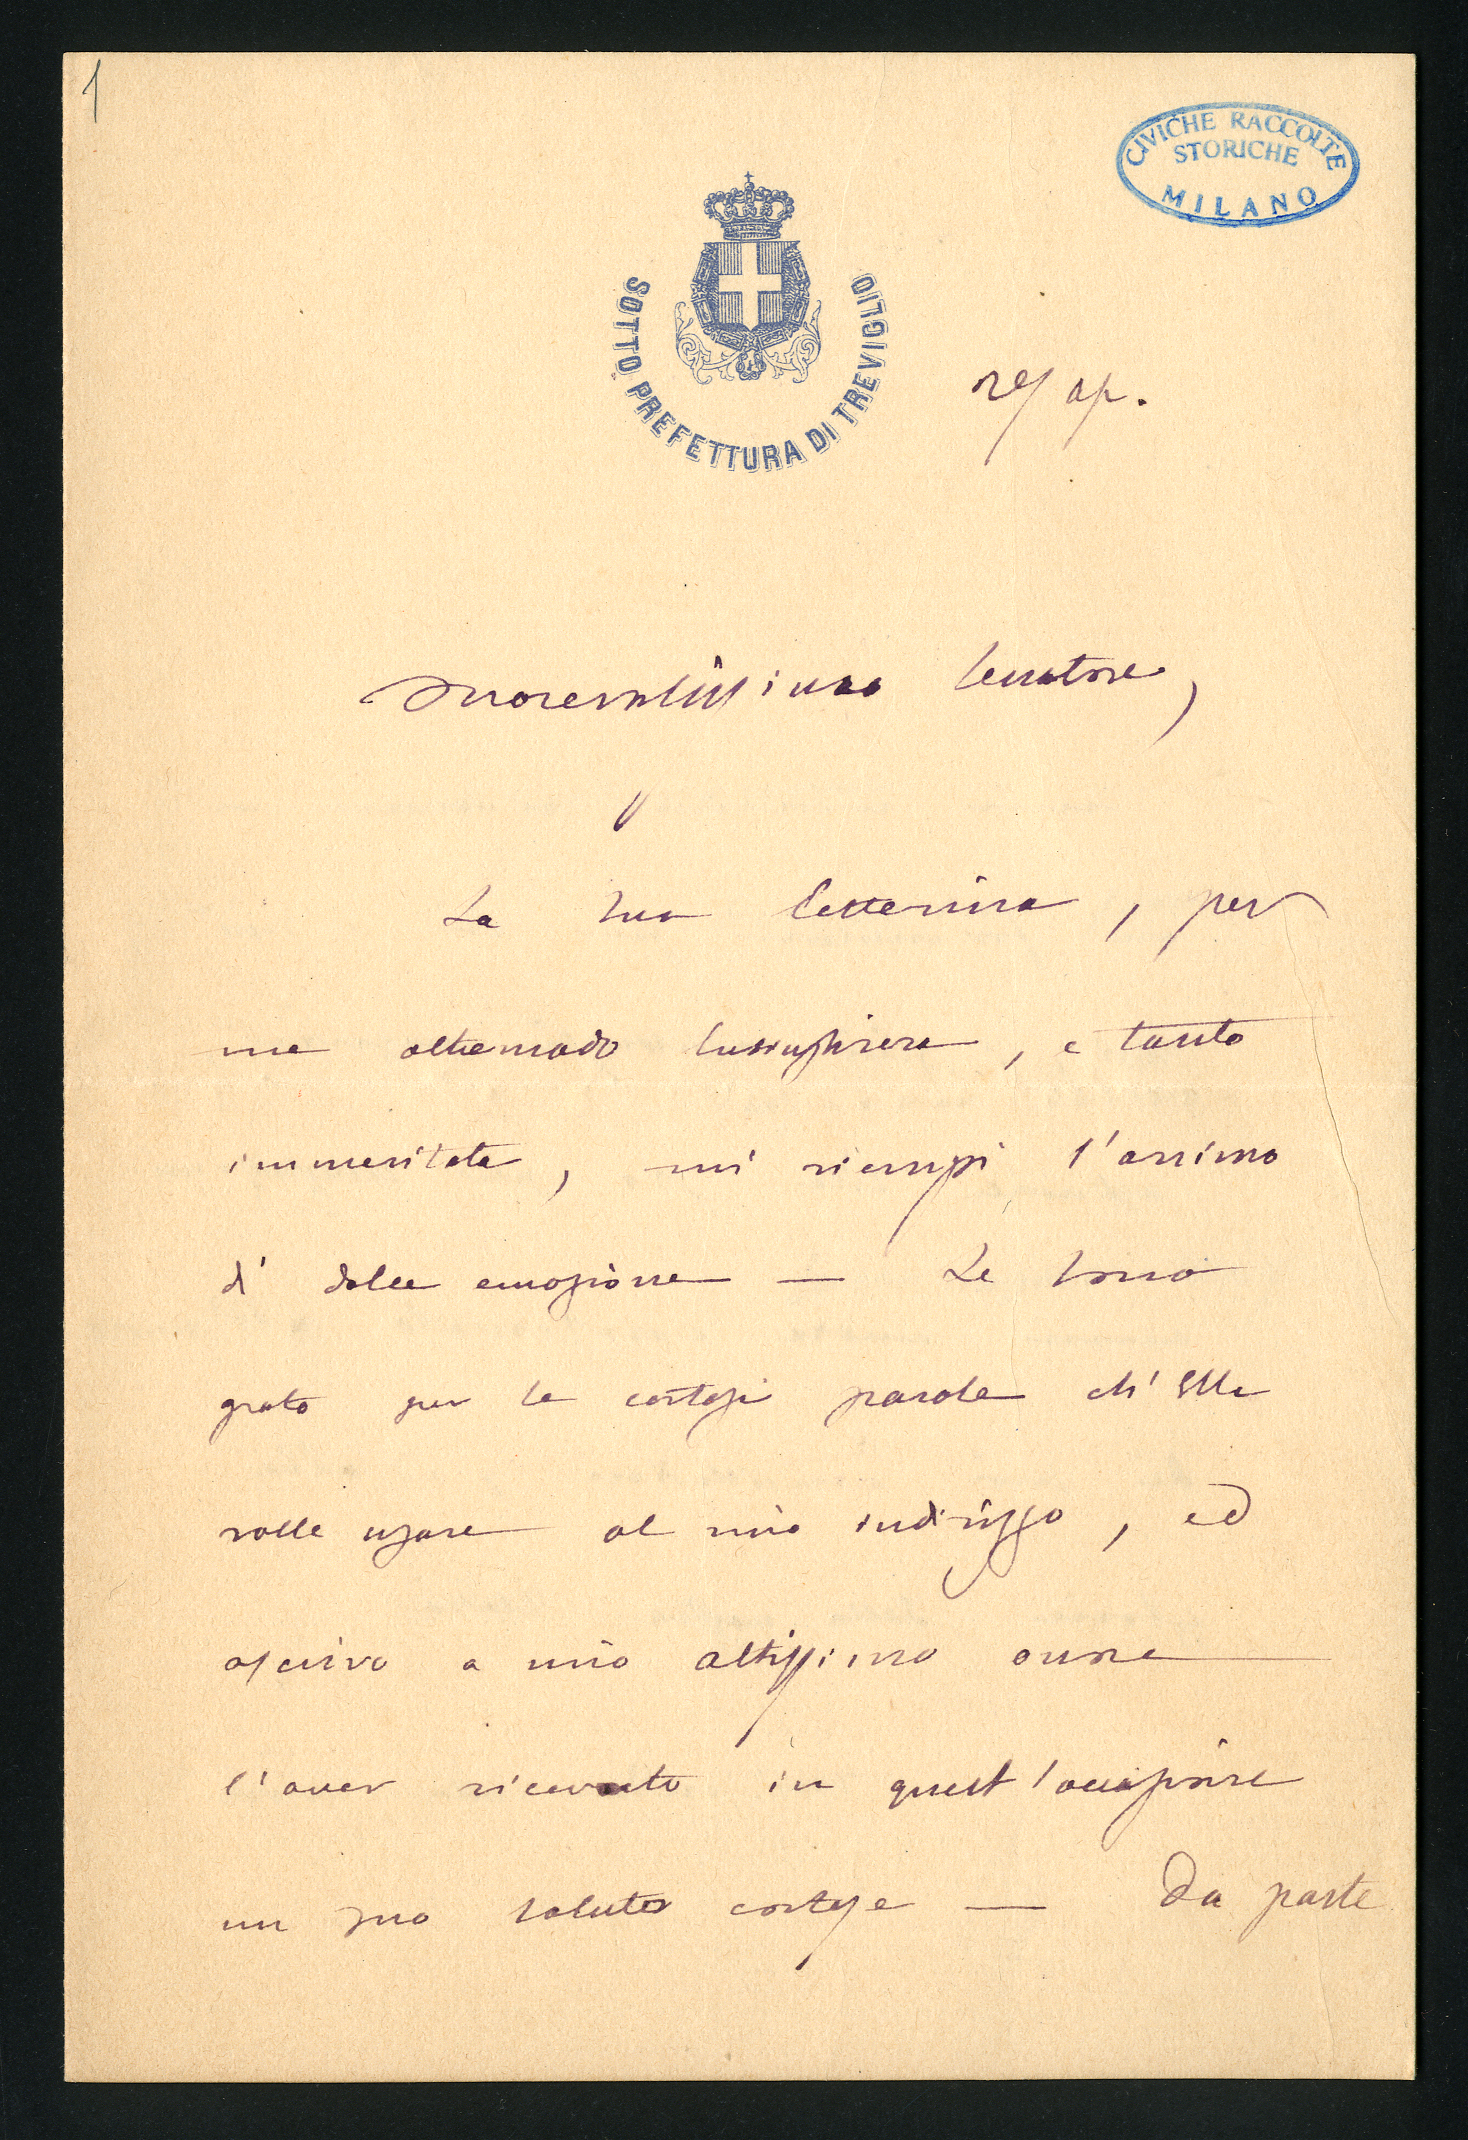 1
CIVICHE RACCOLTE
STORICHE
MILANO
SOTTO PREFETTURA DI TREVIGLIO
ap.
Onorevolissimo Senatore,
La sua letterina, per
me oltremodo lusinghiera, e tanto
immeritata, mi riempì l'animo
di dolce emozione — Le sono
grato per le cortesi parole ch'Ella
volle usare al mio indirizzo, ed
ascrivo a mio altissimo onore
l'aver ricevuto in quest'occasione
un suo saluto cortese — Da parte